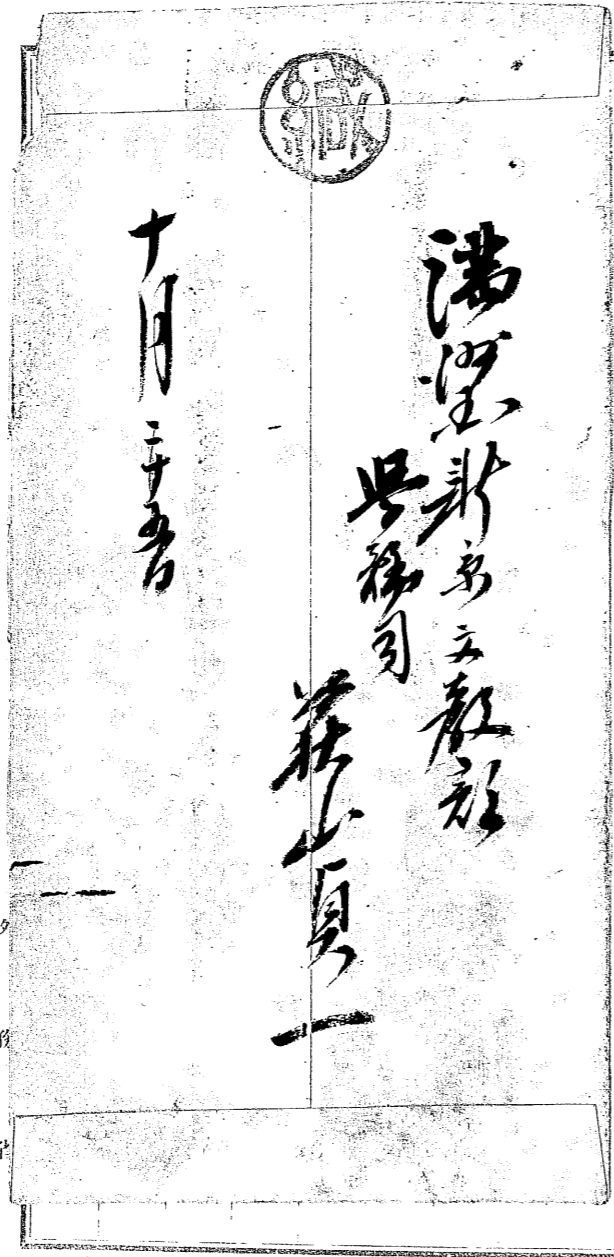 緘
満洲国新京文教部
学務司
荻山貞一
十月二十五日